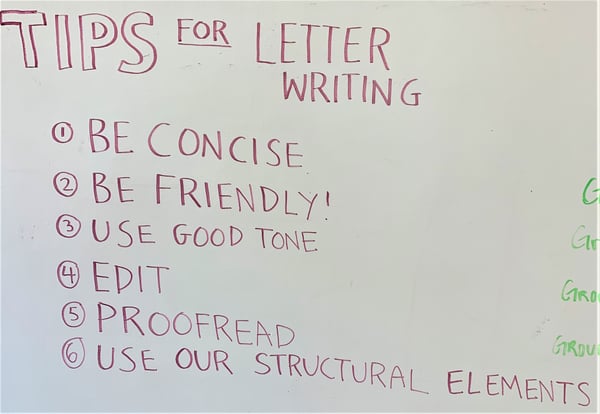 TIPS FOR LETTER
WRITING
① BE CONCISE
② BE FRIENDLY!
③ USE GOOD TONE
④ EDIT
⑤ PROOFREAD
⑥ USE OUR STRUCTURAL ELEMENTS